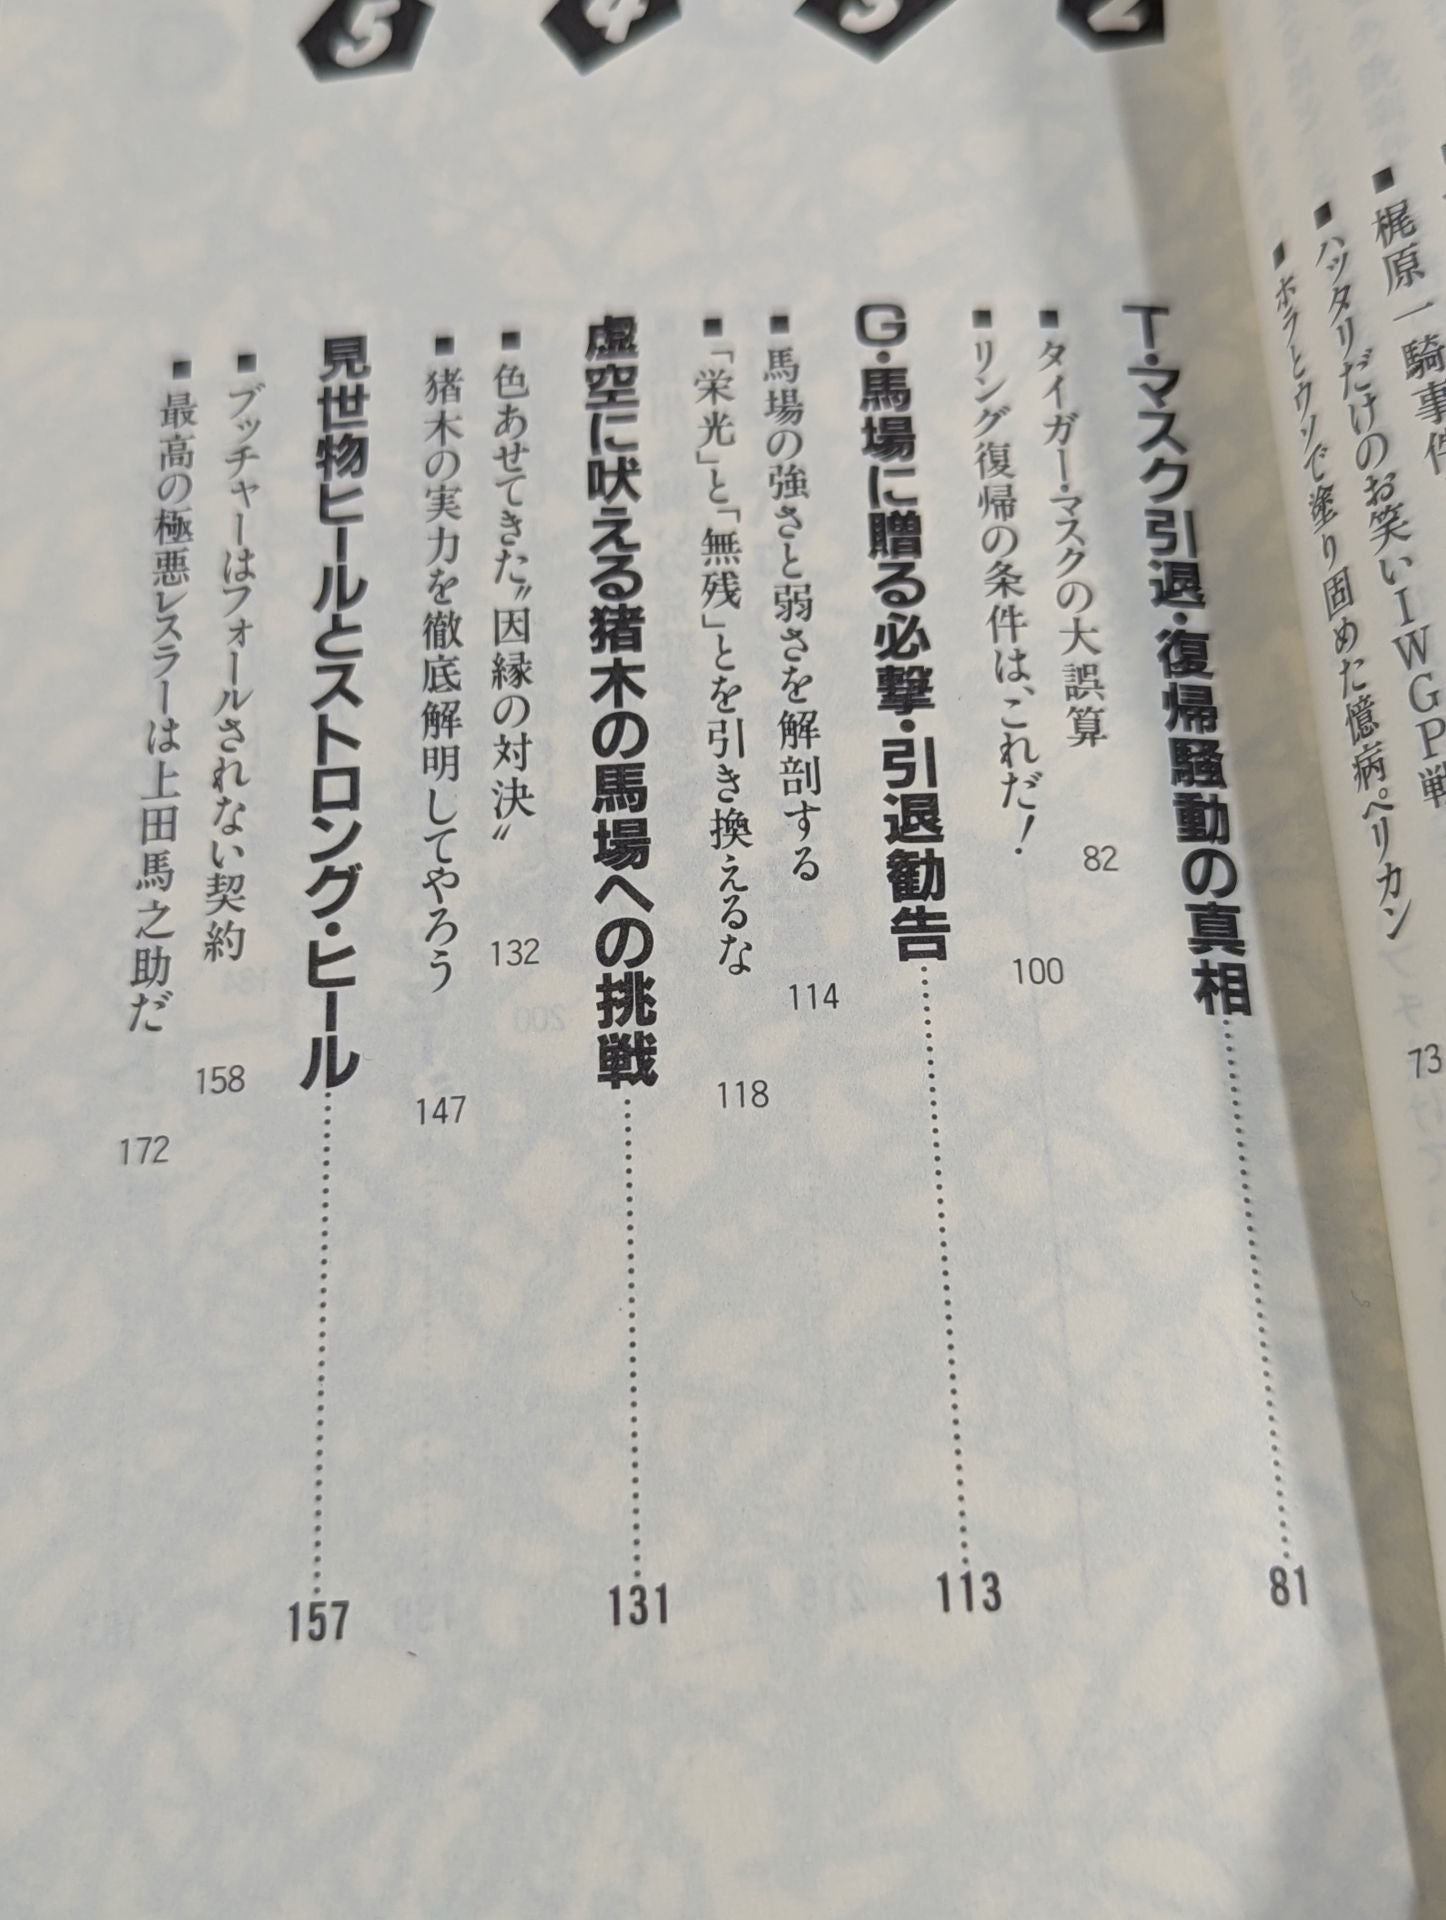 梶原一騎事件
ハッタリだけのお笑いIWGP戦
73
ホラとウソで塗り固めた憶病ペリカン
2
T・マスク引退・復帰騒動の真相
81
タイガー・マスクの大誤算
82
リング復帰の条件は、これだ!
100
3
G・馬場に贈る必撃・引退勧告
113
馬場の強さと弱さを解剖する
114
「栄光」と「無残」とを引き換えるな
118
4
虚空に吠える猪木の馬場への挑戦
131
色あせてきた〝因縁の対決〟
132
猪木の実力を徹底解明してやろう
147
5
見世物ヒールとストロング・ヒール
157
ブッチャーはフォールされない契約
158
最高の極悪レスラーは上田馬之助だ
172